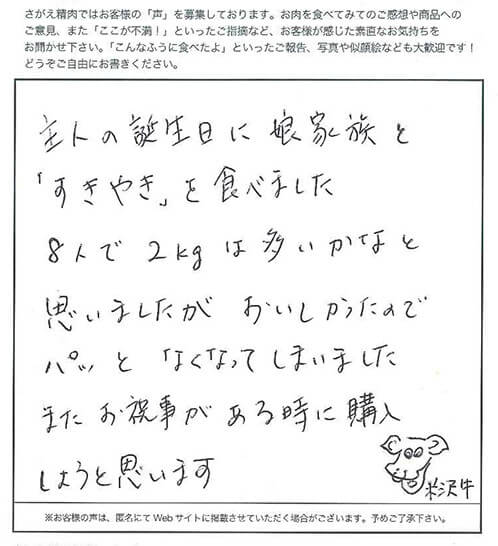 さがえ精肉ではお客様の「声」を募集しております。お肉を食べてみてのご感想や商品への
ご意見、また「ここが不満！」といったご指摘など、お客様が感じた素直なお気持ちを
お聞かせ下さい。「こんなふうに食べたよ」といったご報告、写真や似顔絵なども大歓迎です！
どうぞご自由にお書きください。
主人の誕生日に娘家族と
「すきやき」を食べました
8人で2kgは多いかなと
思いましたがおいしかったので
パッとなくなってしまいました
またお祝事がある時に購入
しようと思います
米沢牛
※お客様の声は、匿名にてWebサイトに掲載させていただく場合がございます。予めご了承下さい。